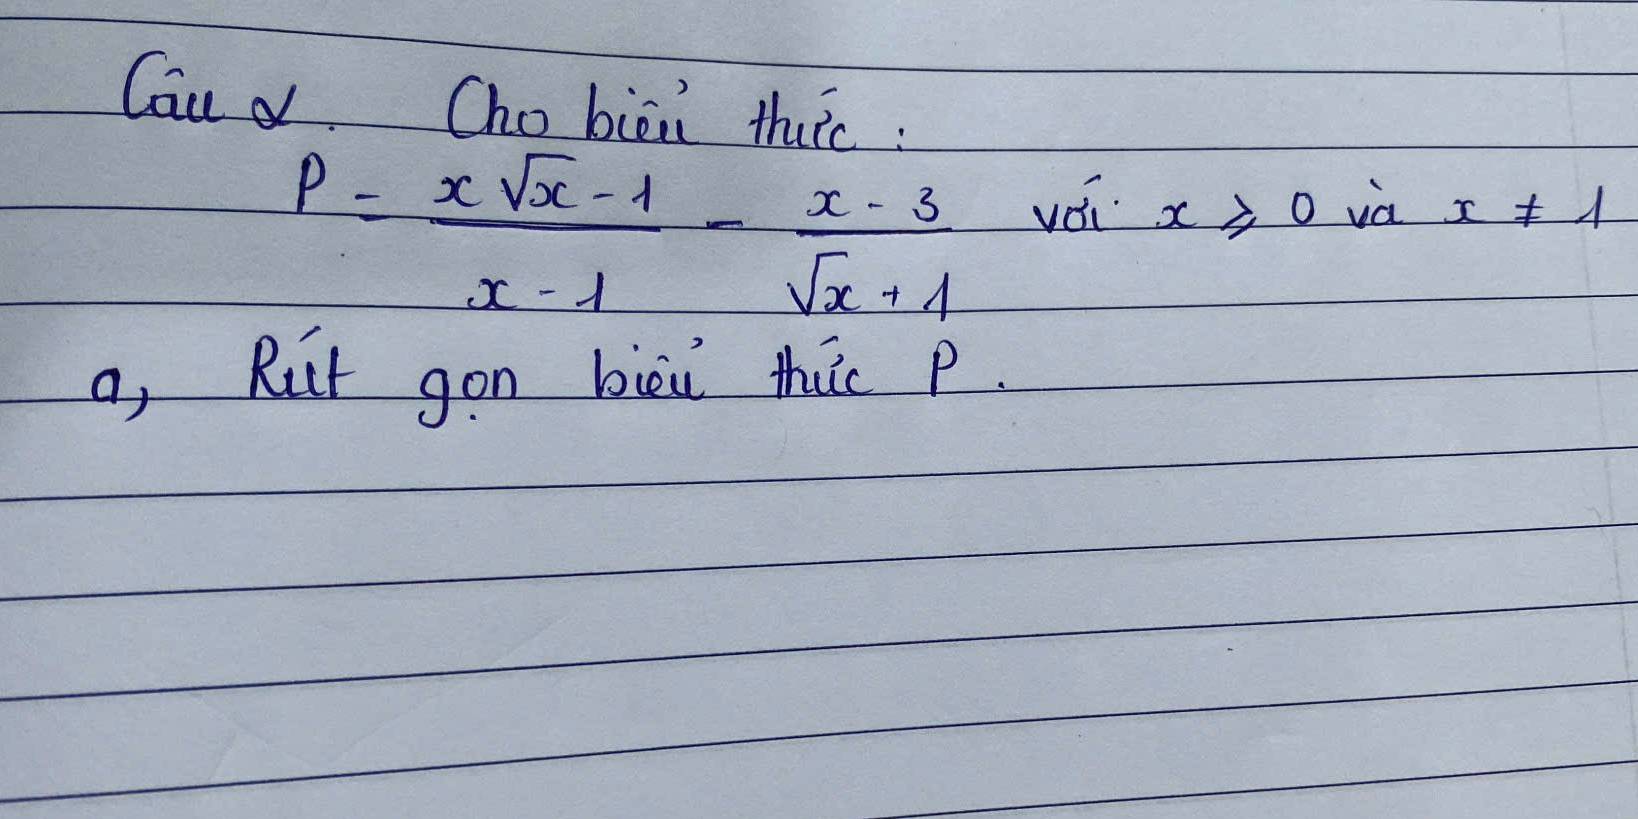 Câu 2. Cho biểu thức :
P = x √x - 1 / x - 1 - x - 3 / √x + 1 với x ⩾ 0 và x ≠ 1
a, Rút gọn biểu thức P .